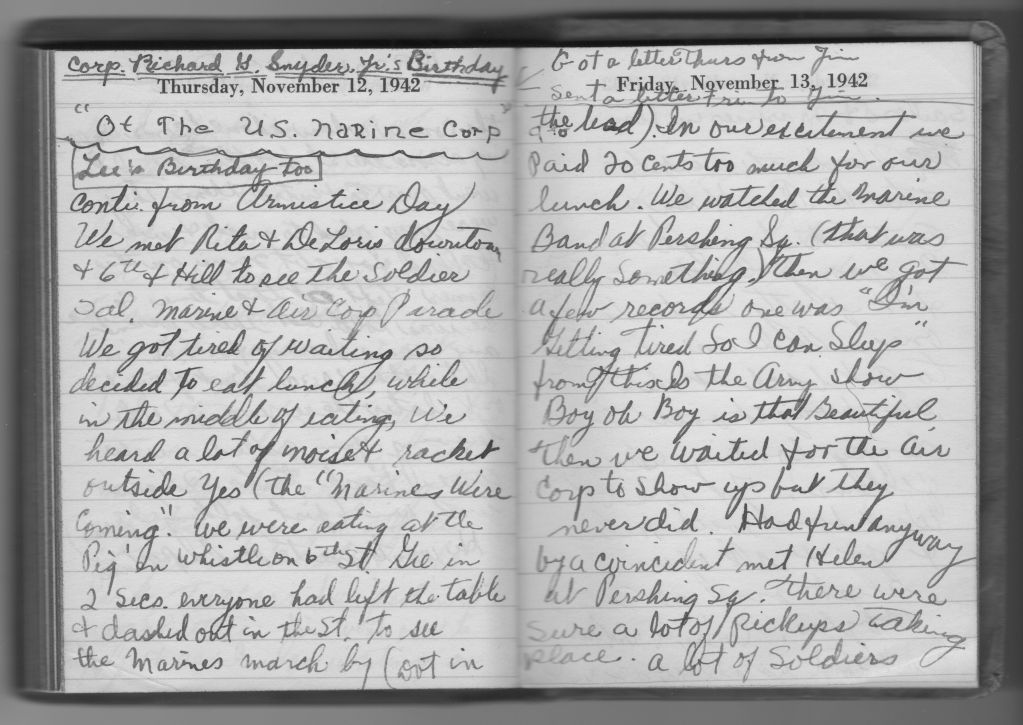 Corp. Richard G. Snyder, Jr.'s Birthday
Thursday, November 12, 1942
"Of The U.S. Marine Corp"
Lee's Birthday too
Contin. from Armistice Day)
We met Rita & DeLoris downtown
& 6th & Hill to see the Soldier
Sal, Marine & Air Corp Parade
We got tired of waiting so
decided to eat lunch, while
in the middle of eating, We
heard a lot of noise & racket
outside Yes (the "Marines Were
Coming". we were eating at the
Pig 'n Whistle on 6th St. Gee in
2 Secs. everyone had left the table
& dashed out in the St. to see
the Marines march by (out in
Got a letter Thurs from Jim
Friday, November 13, 1942
Sent a letter Fri to Jim.
the lead). In our excitement we
Paid 20 cents too much for our
lunch. We watched the Marine
Band at Pershing Sq. (that was
really Something.) then we got
a few records one was "I'm
Getting tired So I can Sleep"
from This Is the Army show
Boy oh Boy is that Beautiful,
then we waited for the Air
Corp to show up but they
never did. Had fun anyway
by a coincident met Helen
at Pershing Sq. there were
sure a lot of pickups taking
place. a lot of Soldiers